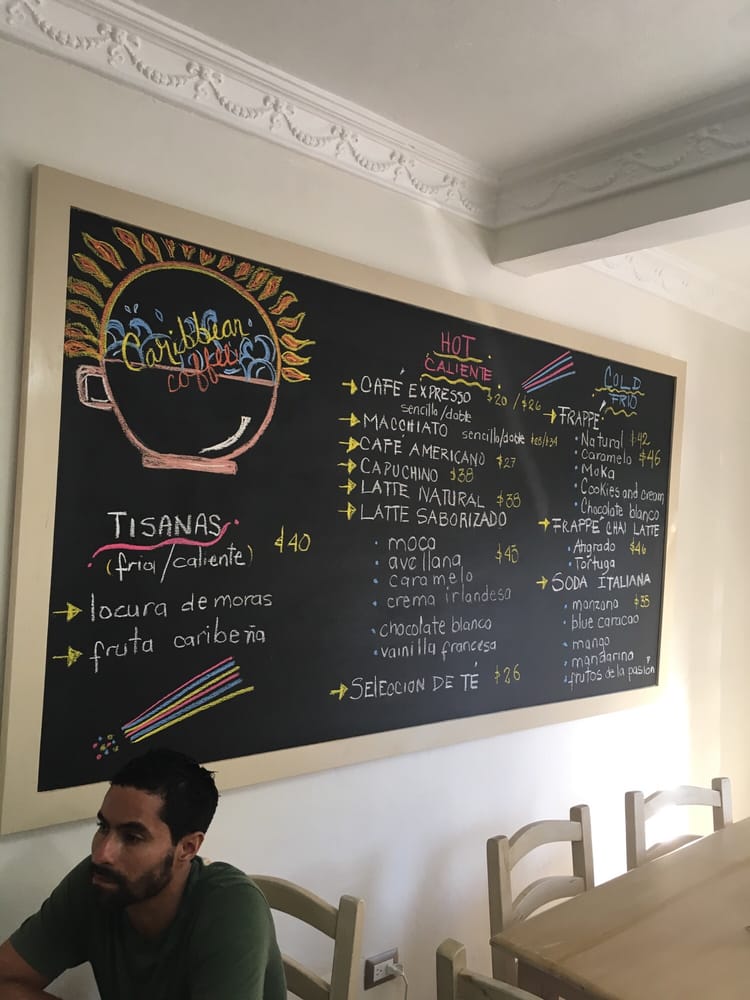 Caribbean
coffee
TISANAS
(fria/caliente) $40
locura de moras
fruta caribeña
HOT
CALIENTE
CAFÉ EXPRESSO $20 / $26
sencillo/doble
MACCHIATO sencillo/doble
CAFÉ AMERICANO $27
CAPUCHINO $38
LATTE NATURAL $38
LATTE SABORIZADO
• moca
• avellana $45
• caramelo
• crema irlandesa
• chocolate blanco
• vainilla francesa
SELECCION DE TÉ $26
COLD
FRIO
FRAPPÉ
• Natural $42
• Caramelo $46
• Moka
• Cookies and cream
• Chocolate blanco
FRAPPÉ CHAI LATTE
• $46
• Tortuga
SODA ITALIANA
• manzana $35
• blue caracao
• mango
• mandarina
• frutos de la pasión